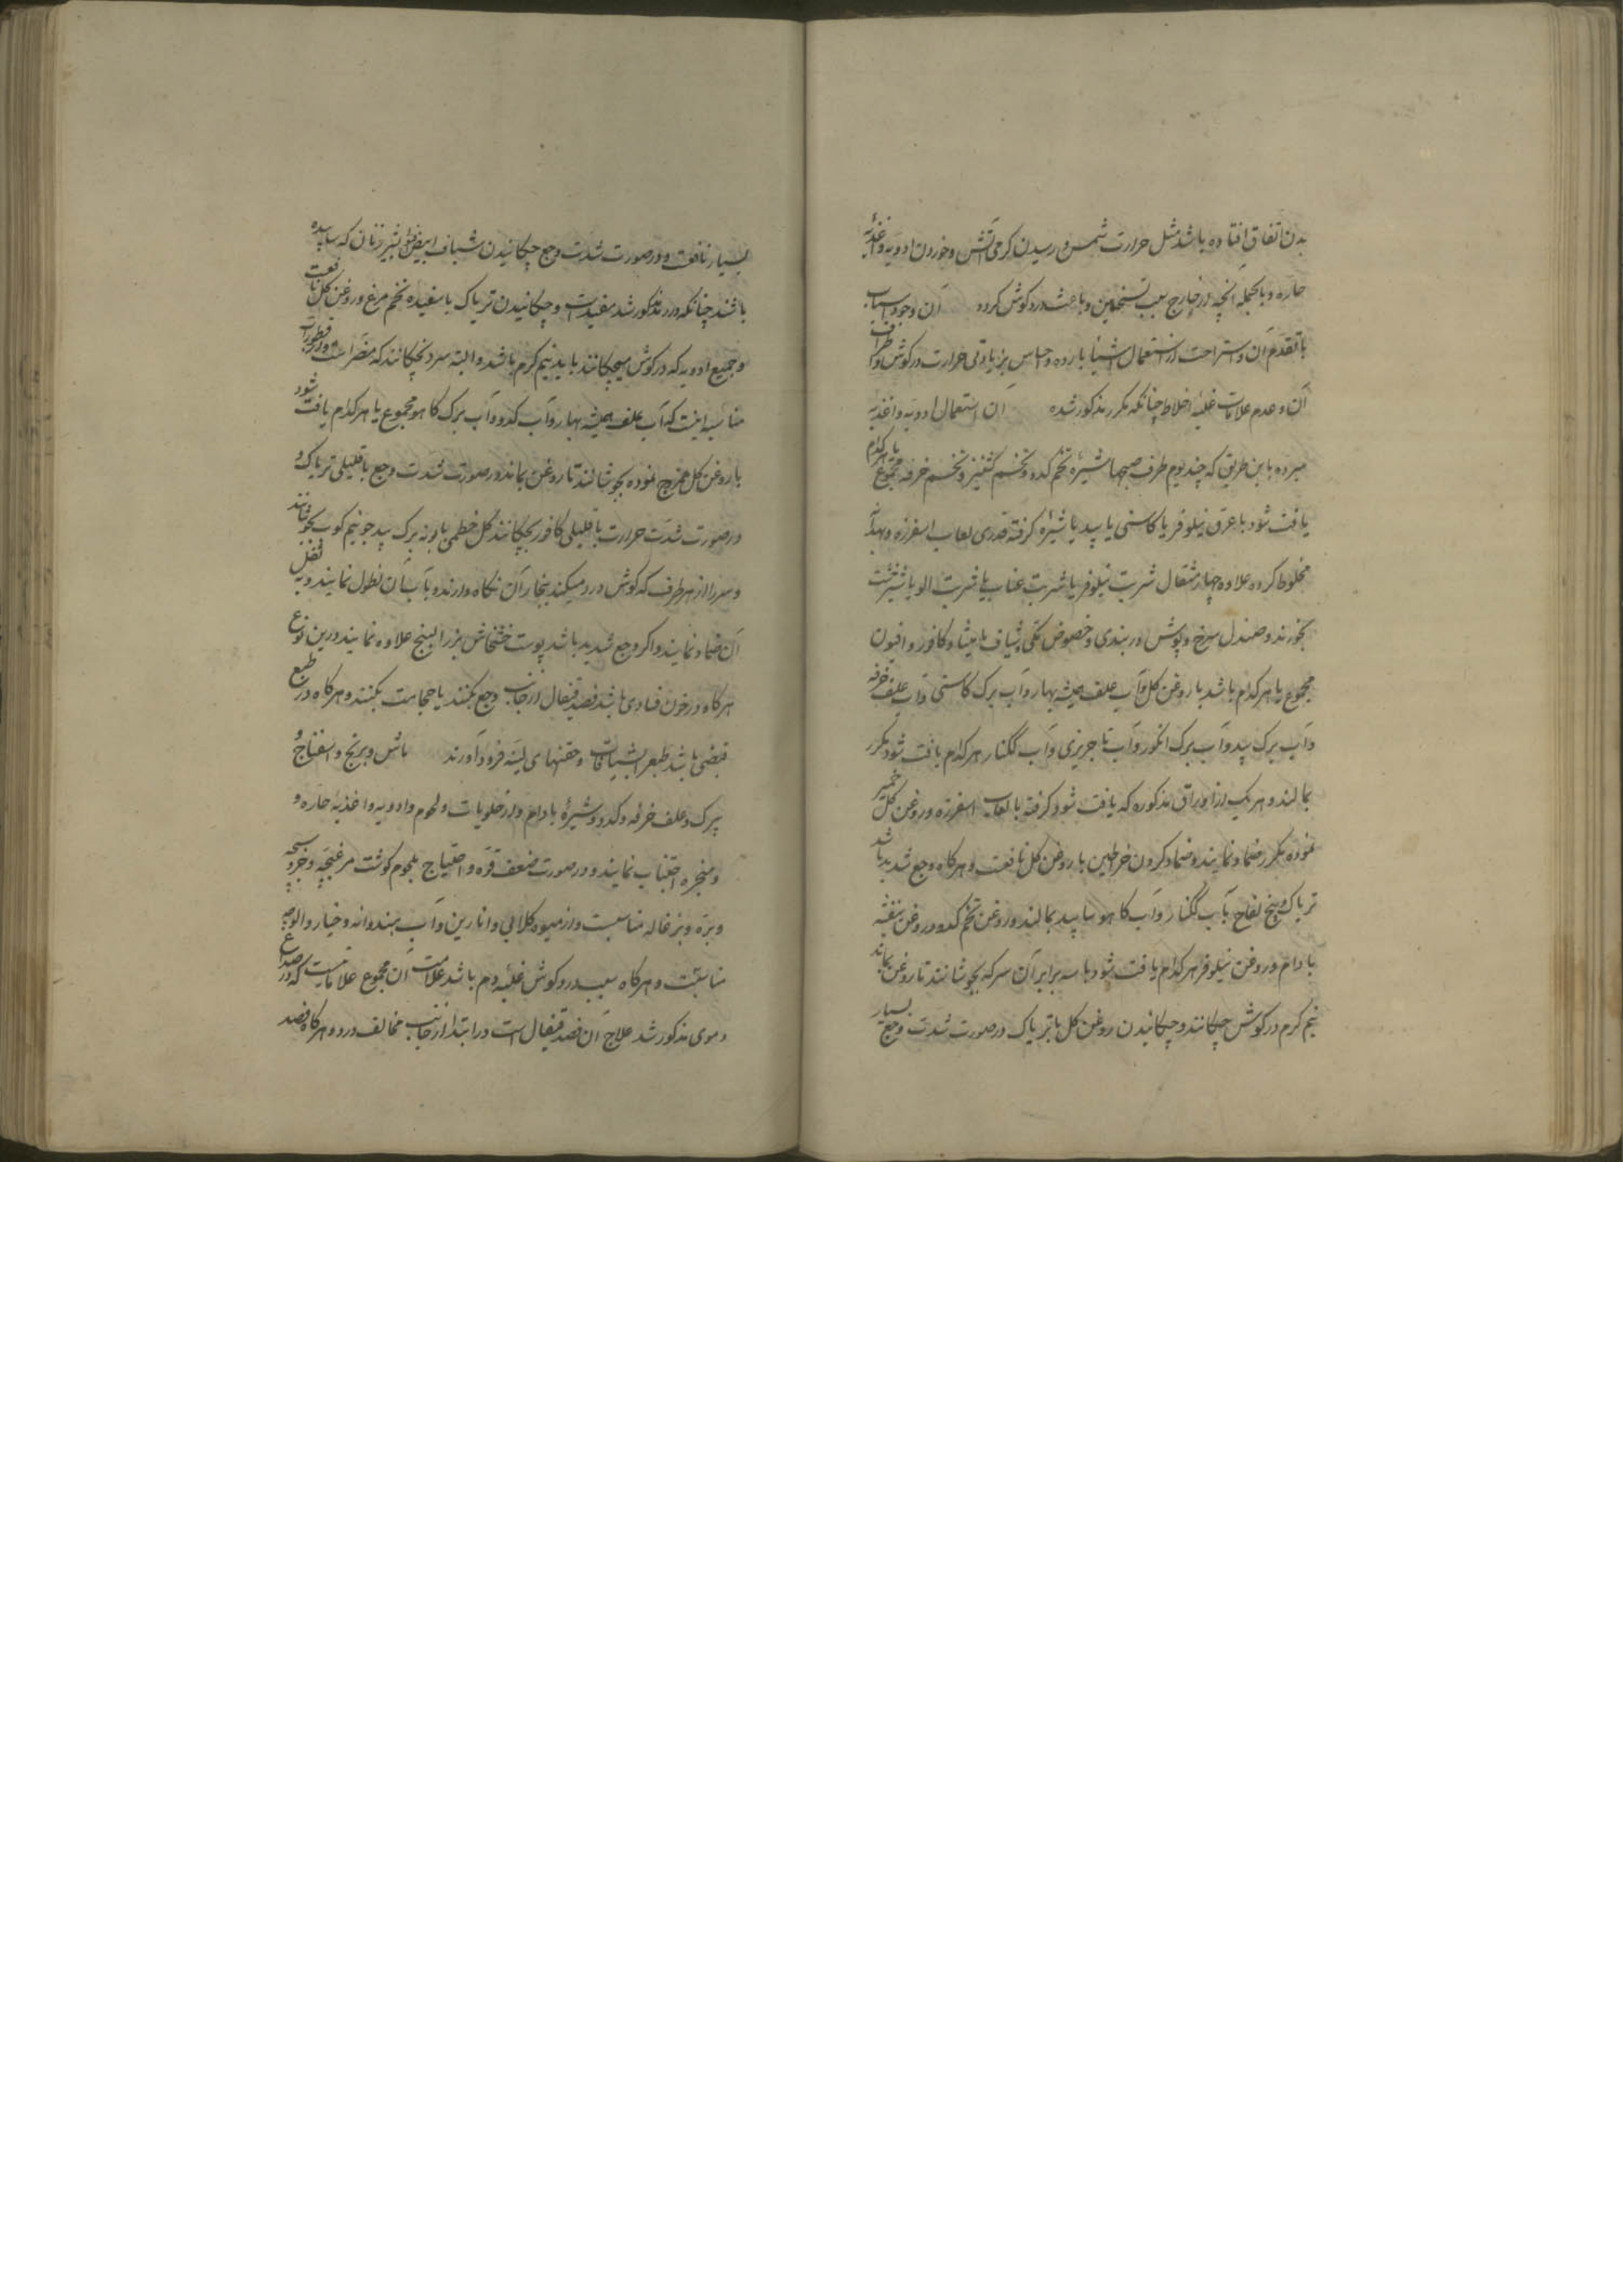 بدن اتفاق افتاده باشد مثل حرارت شمس و رسیدن کرمی آتش و خوردن ادویه و اغذیهٔ
حاره و بالجمله آنچه در خارج سبب تسخین و باعث درد کوش کردد آن وجود اسباب
با تقدم آن و استراحت از استعمال اشیا بارده و احساس بزیادتی حرارت در کوش و اطراف
آن و عدم علامات غلبهٔ اخلاط چنانکه مکرر مذکور شده آن استعمال ادویه و اغذیه
مبرده باین طریق که چند یوم طرف صبحها شیرهٔ تخم کدو و تخم کشنیز و تخم خرفه مجموع یا هرکدام
یافت شود با عرق نیلوفر یا کاسنی یا بید یا شیره کرفته قدری لعاب اسفرزه و بهدانه
مخلوط کرده علاوه چهار مثقال شربت نیلوفر یا شربت عناب یا شربت الو یا
بخورند و صندل سرخ و پوش دربندی و خصوص مکی و شیاف مامیثا و کافور و افیون
مجموع یا هرکدام باشد با روغن کل و آب علف همیشه بهار و آب برک کاسنی و آب علف خرفه
و آب برک بید و آب برک انکور و آب تاجریزی و آب کلنار هرکدام یافت شود مکرر
بمالند و هر یک از اوراق مذکوره که یافت شود کرفته با لعاب اسفرزه و روغن کل خمیر
نموده مکرر ضماد نمایند و ضماد کردن خراطین با روغن کل نافعست و هرکاه وجع شدید باشد
تریاک و بیخ لفاح بآب کلنار و آب کاهو سابیده بمالند و روغن تخم کدو و روغن بنفشه
بادام و روغن نیلوفر هرکدام یافت شود با سه برابر آن سرکه بجوشانند تا روغن بماند
نیم کرم در کوش چکانند و چکانیدن روغن کل با تریاک در صورت شدت وجع بسیار
بسیار نافعست و در صورت شدت وجع چکانیدن شیاف ابیض افیونی بشیر زنان که سابیده
باشند چنانکه در رمد مذکور شد مفیدست و چکانیدن تریاک با سفیده تخم مرغ و روغن کل نافعست
و جمیع ادویه که در کوش میچکانند باید نیم کرم باشد و البته سرد نچکانند که مضر است و از قطورات
مناسبه اینست که آب علف همیشه بهار و آب کدو و آب برک کاهو مجموع یا هرکدام یافت شود
با روغن کل ممزوج نموده بجوشانند تا روغن بماند و در صورت شدت وجع با قلیلی تریاک و
در صورت شدت حرارت با قلیلی کافور بچکانند کل خطمی بابونه برک بید جو نیم کوب بجوشانند
و سر را از هر طرف که کوش درد میکند ببخار آن نکاه دارند و بآب آن نطول نمایند و به ثفل
آن ضماد نمایند و اکر وجع شدید باشد پوست خشخاش بزرالبنج علاوه نمایند درین نوع
هرکاه در خون فسادی باشد فصد قیفال از جانب وجع بکنند یا حجامت بکنند و هرکاه در طبع
قبضی باشد طبع را بشیافات و حقنهای لینه فرود آورند ماش و برنج و اسفناج و
برک و علف خرفه و کدو و شیرهٔ بادام و از حلویات و لحوم و ادویه و اغذیهٔ حاره و
و مبخره اجتناب نمایند و در صورت ضعف قوه و احتیاج بلحوم کوشت مرغبچه و
و بره و بزغاله مناسبست و از میوه کلابی و انارین و آب هندوانه و خیار و الوچه
مناسبست و هرکاه سبب درد کوش غلبهٔ دم باشد علامت آن مجموع علاماتیست که در صداع
دموی مذکور شد علاج آن فصد قیفال است در ابتدا از جانب مخالف درد و هرکاه فصد